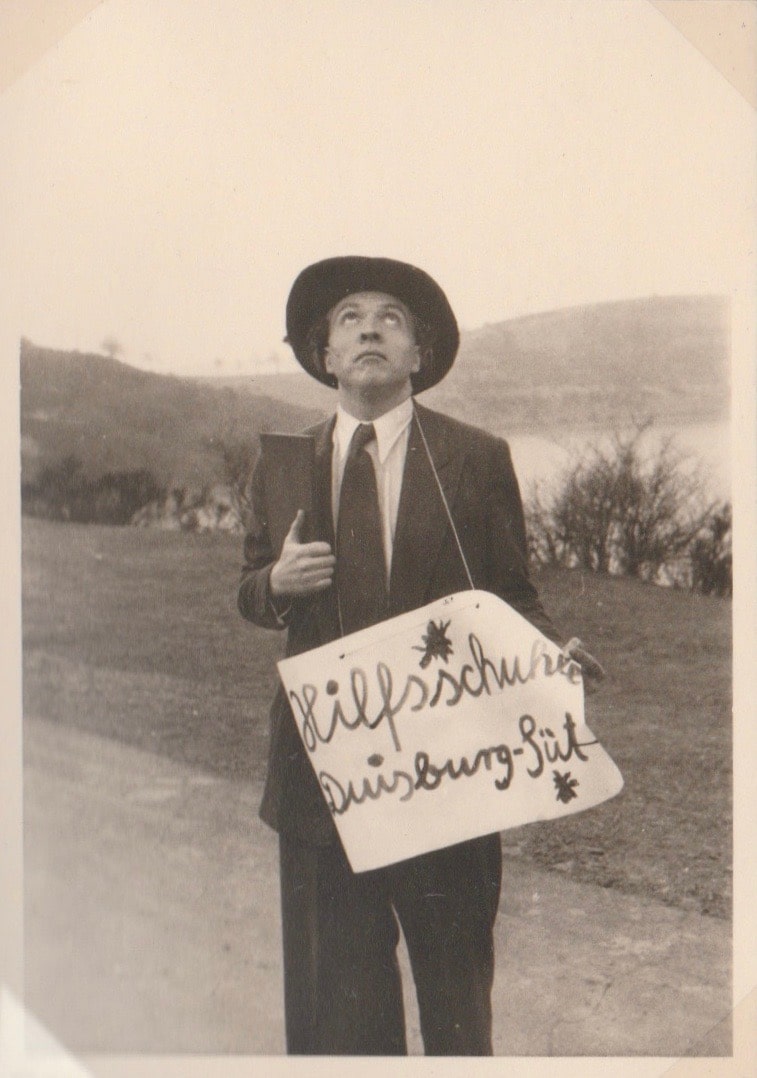 Hilfsschuhle
Duisburg-Süt